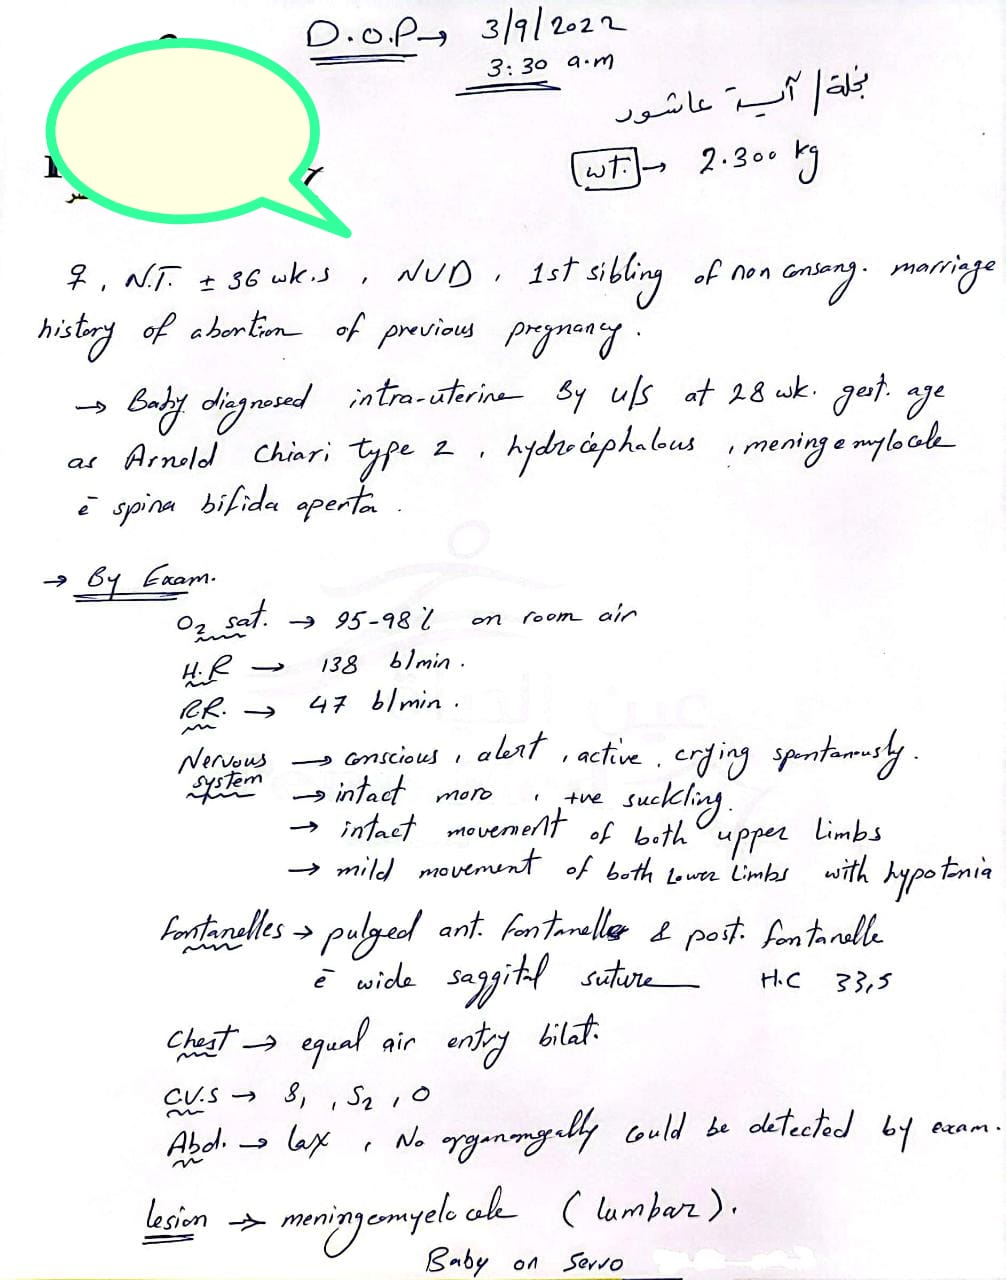 D.O.P → 3/9/2022
3:30 a.m
نجلة / آية عاشور
wt. → 2.300 kg
♀, N.T. ± 36 wk.s , NUD , 1st sibling of non consang. marriage
history of abortion of previous pregnancy.
→ Baby diagnosed intra-uterine By u/s at 28 wk. gest. age
as Arnold Chiari type 2 , hydrocephalous , meningemylocele
c̄ spina bifida aperta .
→ By Exam.
O2 sat. → 95-98 % on room air
H.R → 138 b/min .
RR. → 47 b/min .
Nervous system → conscious , alert , active , crying spontanously .
→ intact moro , +ve suckling.
→ intact movement of both upper limbs
→ mild movement of both Lower Limbs with hypotonia
fontanelles → pulged ant. fontanelle & post. fontanelle
c̄ wide saggital suture H.C 33,5
Chest → equal air entry bilat.
C.V.S → S1 , S2 , 0
Abd. → lax , No organomgally could be detected by exam.
lesion → meningomyelocele ( lumbar ).
Baby on Servo